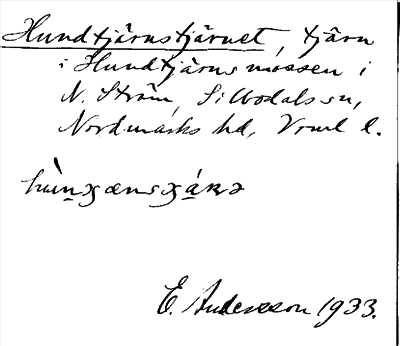 Hundtjärnstjärnet, tjärn
i Hundtjärnsmossen i
N. Ström, Silbodals sn,
Nordmarks hd, Vrml l.
E. Andersson 1933.